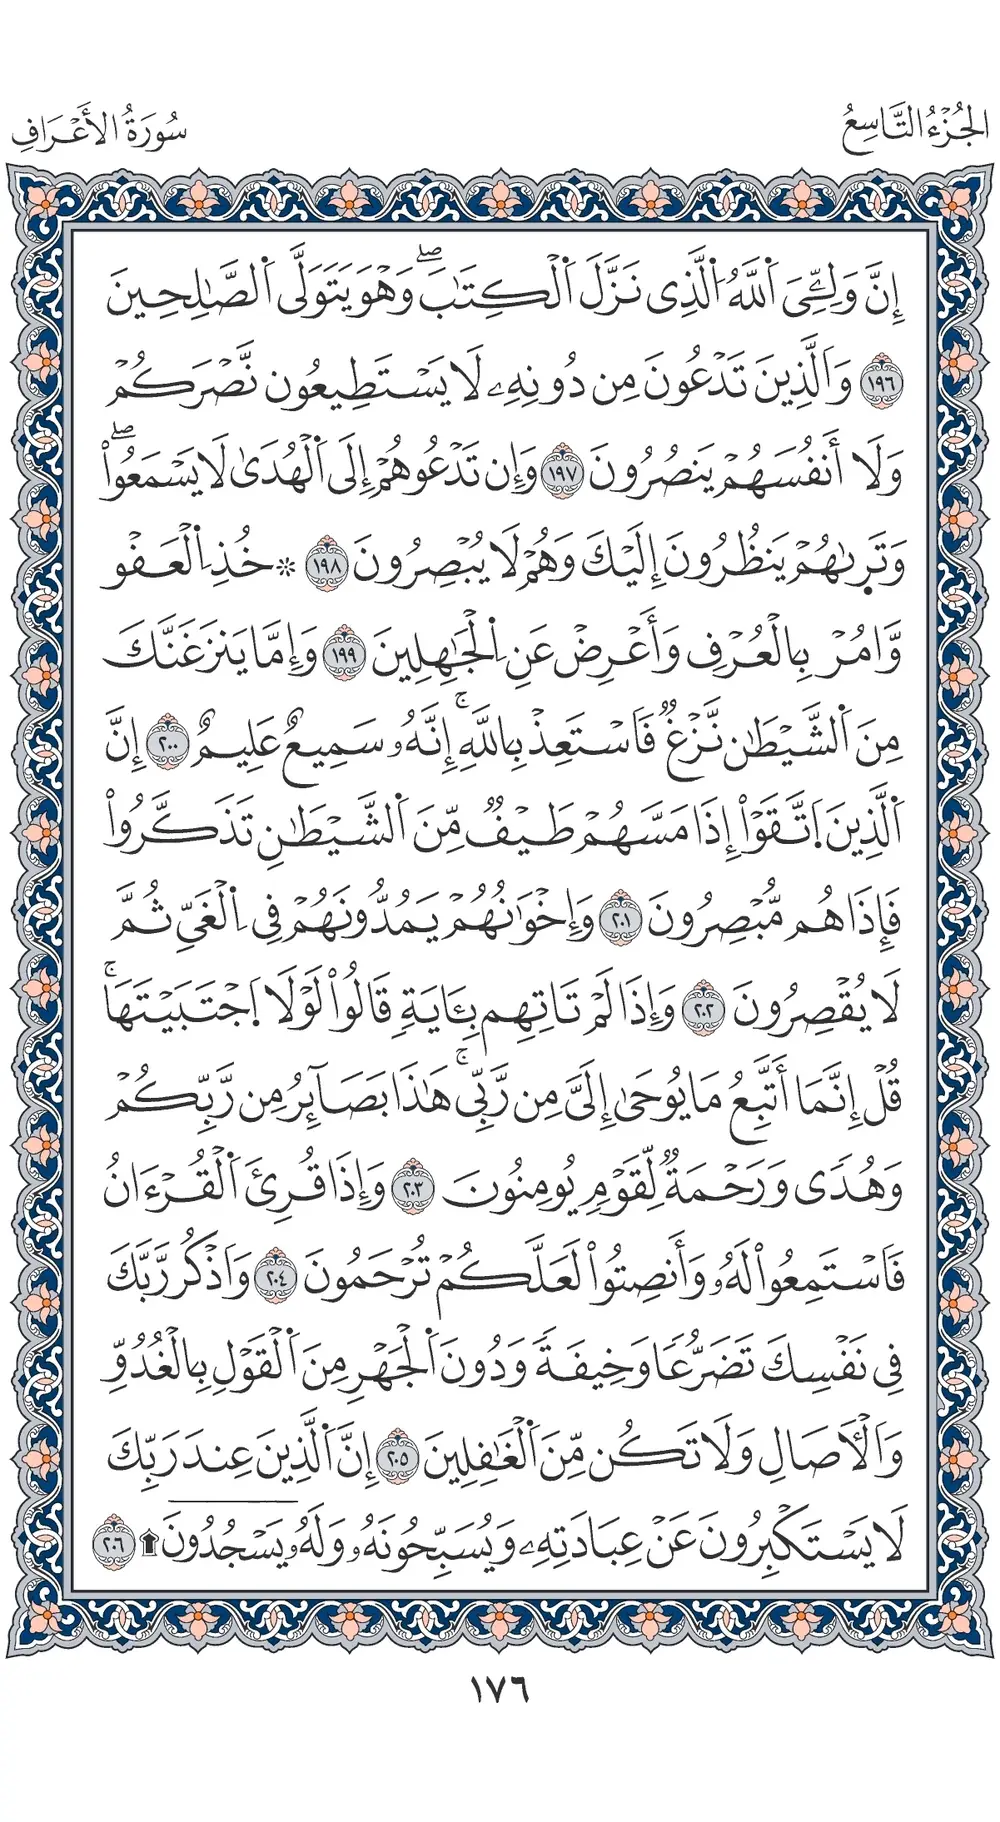 الجُزْءُ التَّاسِعُ
سُورَةُ الأَعْرَافِ
إِنَّ وَلِـِّۧيَ اَ۬للَّهُ اُ۬لَّذِي نَزَّلَ اَ۬لْكِتَٰبَۖ وَهْوَ يَتَوَلَّى اَ۬لصَّٰلِحِينَ
١٩٦ وَالَّذِينَ تَدْعُونَ مِن دُونِهِۦ لَا يَسْتَطِيعُون نَّصْرَكُمْ
وَلَا أَنفُسَهُمْ يَنصُرُونَ ١٩٧ وَإِن تَدْعُوهُمْ إِلَى اَ۬لْهُدَىٰ لَا يَسْمَعُواْۖ
وَتَر۪ىٰهُمْ يَنظُرُونَ إِلَيْكَ وَهُمْ لَا يُبْصِرُونَ ١٩٨ ۞ خُذِ اِ۬لْعَفْو
وَّامُرْ بِالْعُرْفِ وَأَعْرِضْ عَنِ اِ۬لْجَٰهِلِينَ ١٩٩ وَإِمَّا يَنزَغَنَّكَ
مِنَ اَ۬لشَّيْطَٰن نَّزْغٞ فَاسْتَعِذْ بِاللَّهِۚ إِنَّهُۥ سَمِيعٌ عَلِيمٌ ٢٠٠ إِنَّ
اَ۬لَّذِينَ اَ۪تَّقَوْاْ إِذَا مَسَّهُمْ طَيْفٞ مِّنَ اَ۬لشَّيْطَٰنِ تَذَكَّرُواْ
فَإِذَا هُم مُّبْصِرُونَ ٢٠١ وَإِخْوَٰنُهُمْ يَمُدُّونَهُمْ فِي اِ۬لْغَيِّ ثُمَّ
لَا يُقْصِرُونَ ٢٠٢ وَإِذَا لَمْ تَاتِهِم بِـَٔايَةٖ قَالُواْ لَوْلَا اَ۪جْتَبَيْتَهَاۚ
قُلْ إِنَّمَا أَتَّبِعُ مَا يُوحَىٰ إِلَيَّ مِن رَّبِّيۚ هَٰذَا بَصَآئِرُ مِن رَّبِّكُمْ
وَهُدٗى وَرَحْمَةٞ لِّقَوْمٖ يُومِنُونَ ٢٠٣ وَإِذَا قُرِئَ اَ۬لْقُرْءَانُ
فَاسْتَمِعُواْ لَهُۥ وَأَنصِتُواْ لَعَلَّكُمْ تُرْحَمُونَ ٢٠٤ وَاذْكُر رَّبَّكَ
فِي نَفْسِكَ تَضَرُّعٗا وَخِيفَةٗ وَدُونَ اَ۬لْجَهْرِ مِنَ اَ۬لْقَوْلِ بِالْغُدُوِّ
وَالْأٓصَالِ وَلَا تَكُن مِّنَ اَ۬لْغَٰفِلِينَ ٢٠٥ إِنَّ اَ۬لَّذِينَ عِندَ رَبِّكَ
لَا يَسْتَكْبِرُونَ عَنْ عِبَادَتِهِۦ وَيُسَبِّحُونَهُۥ وَلَهُۥ يَسْجُدُونَ ۩ ٢٠٦
١٧٦